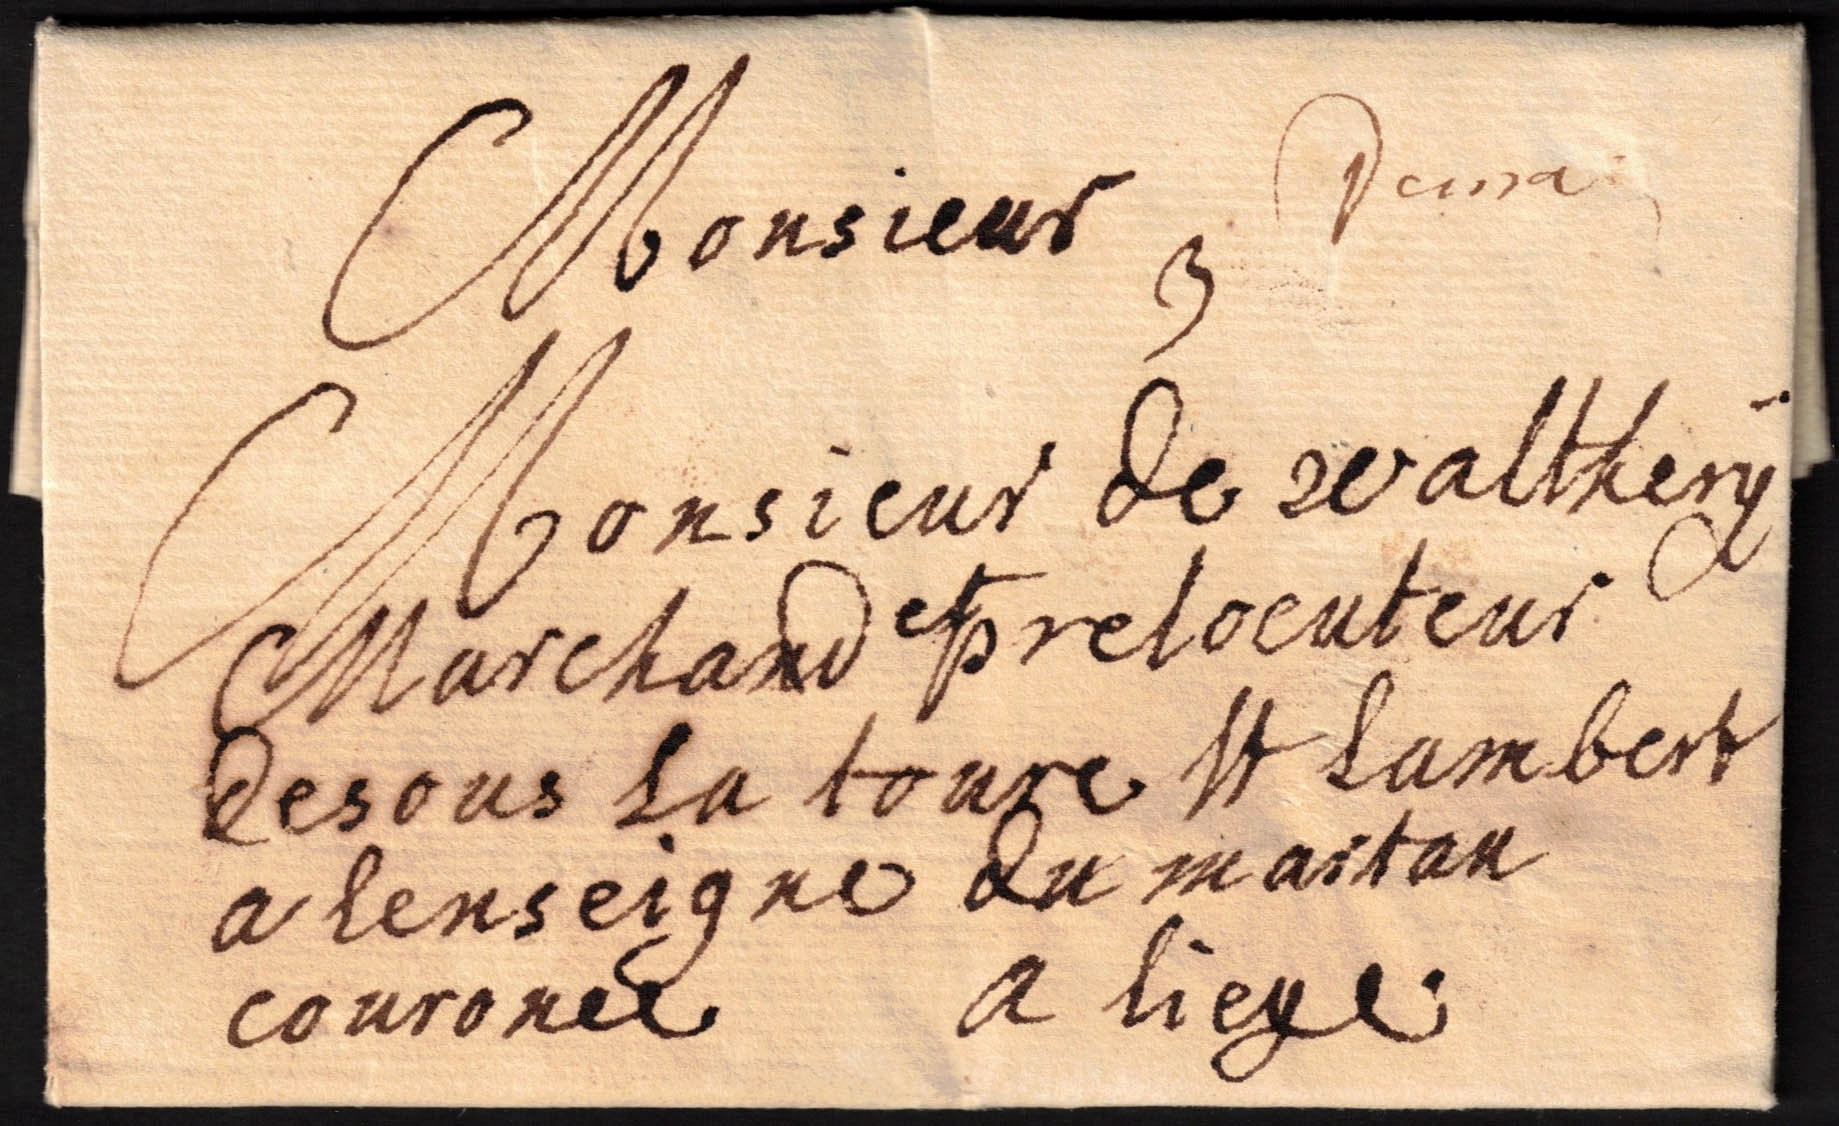 Monsieur
3
Monsieur de walthery
Marchand et prelocuteur
desous la toure St Lambert
a lenseigne du martau
couronée a liege